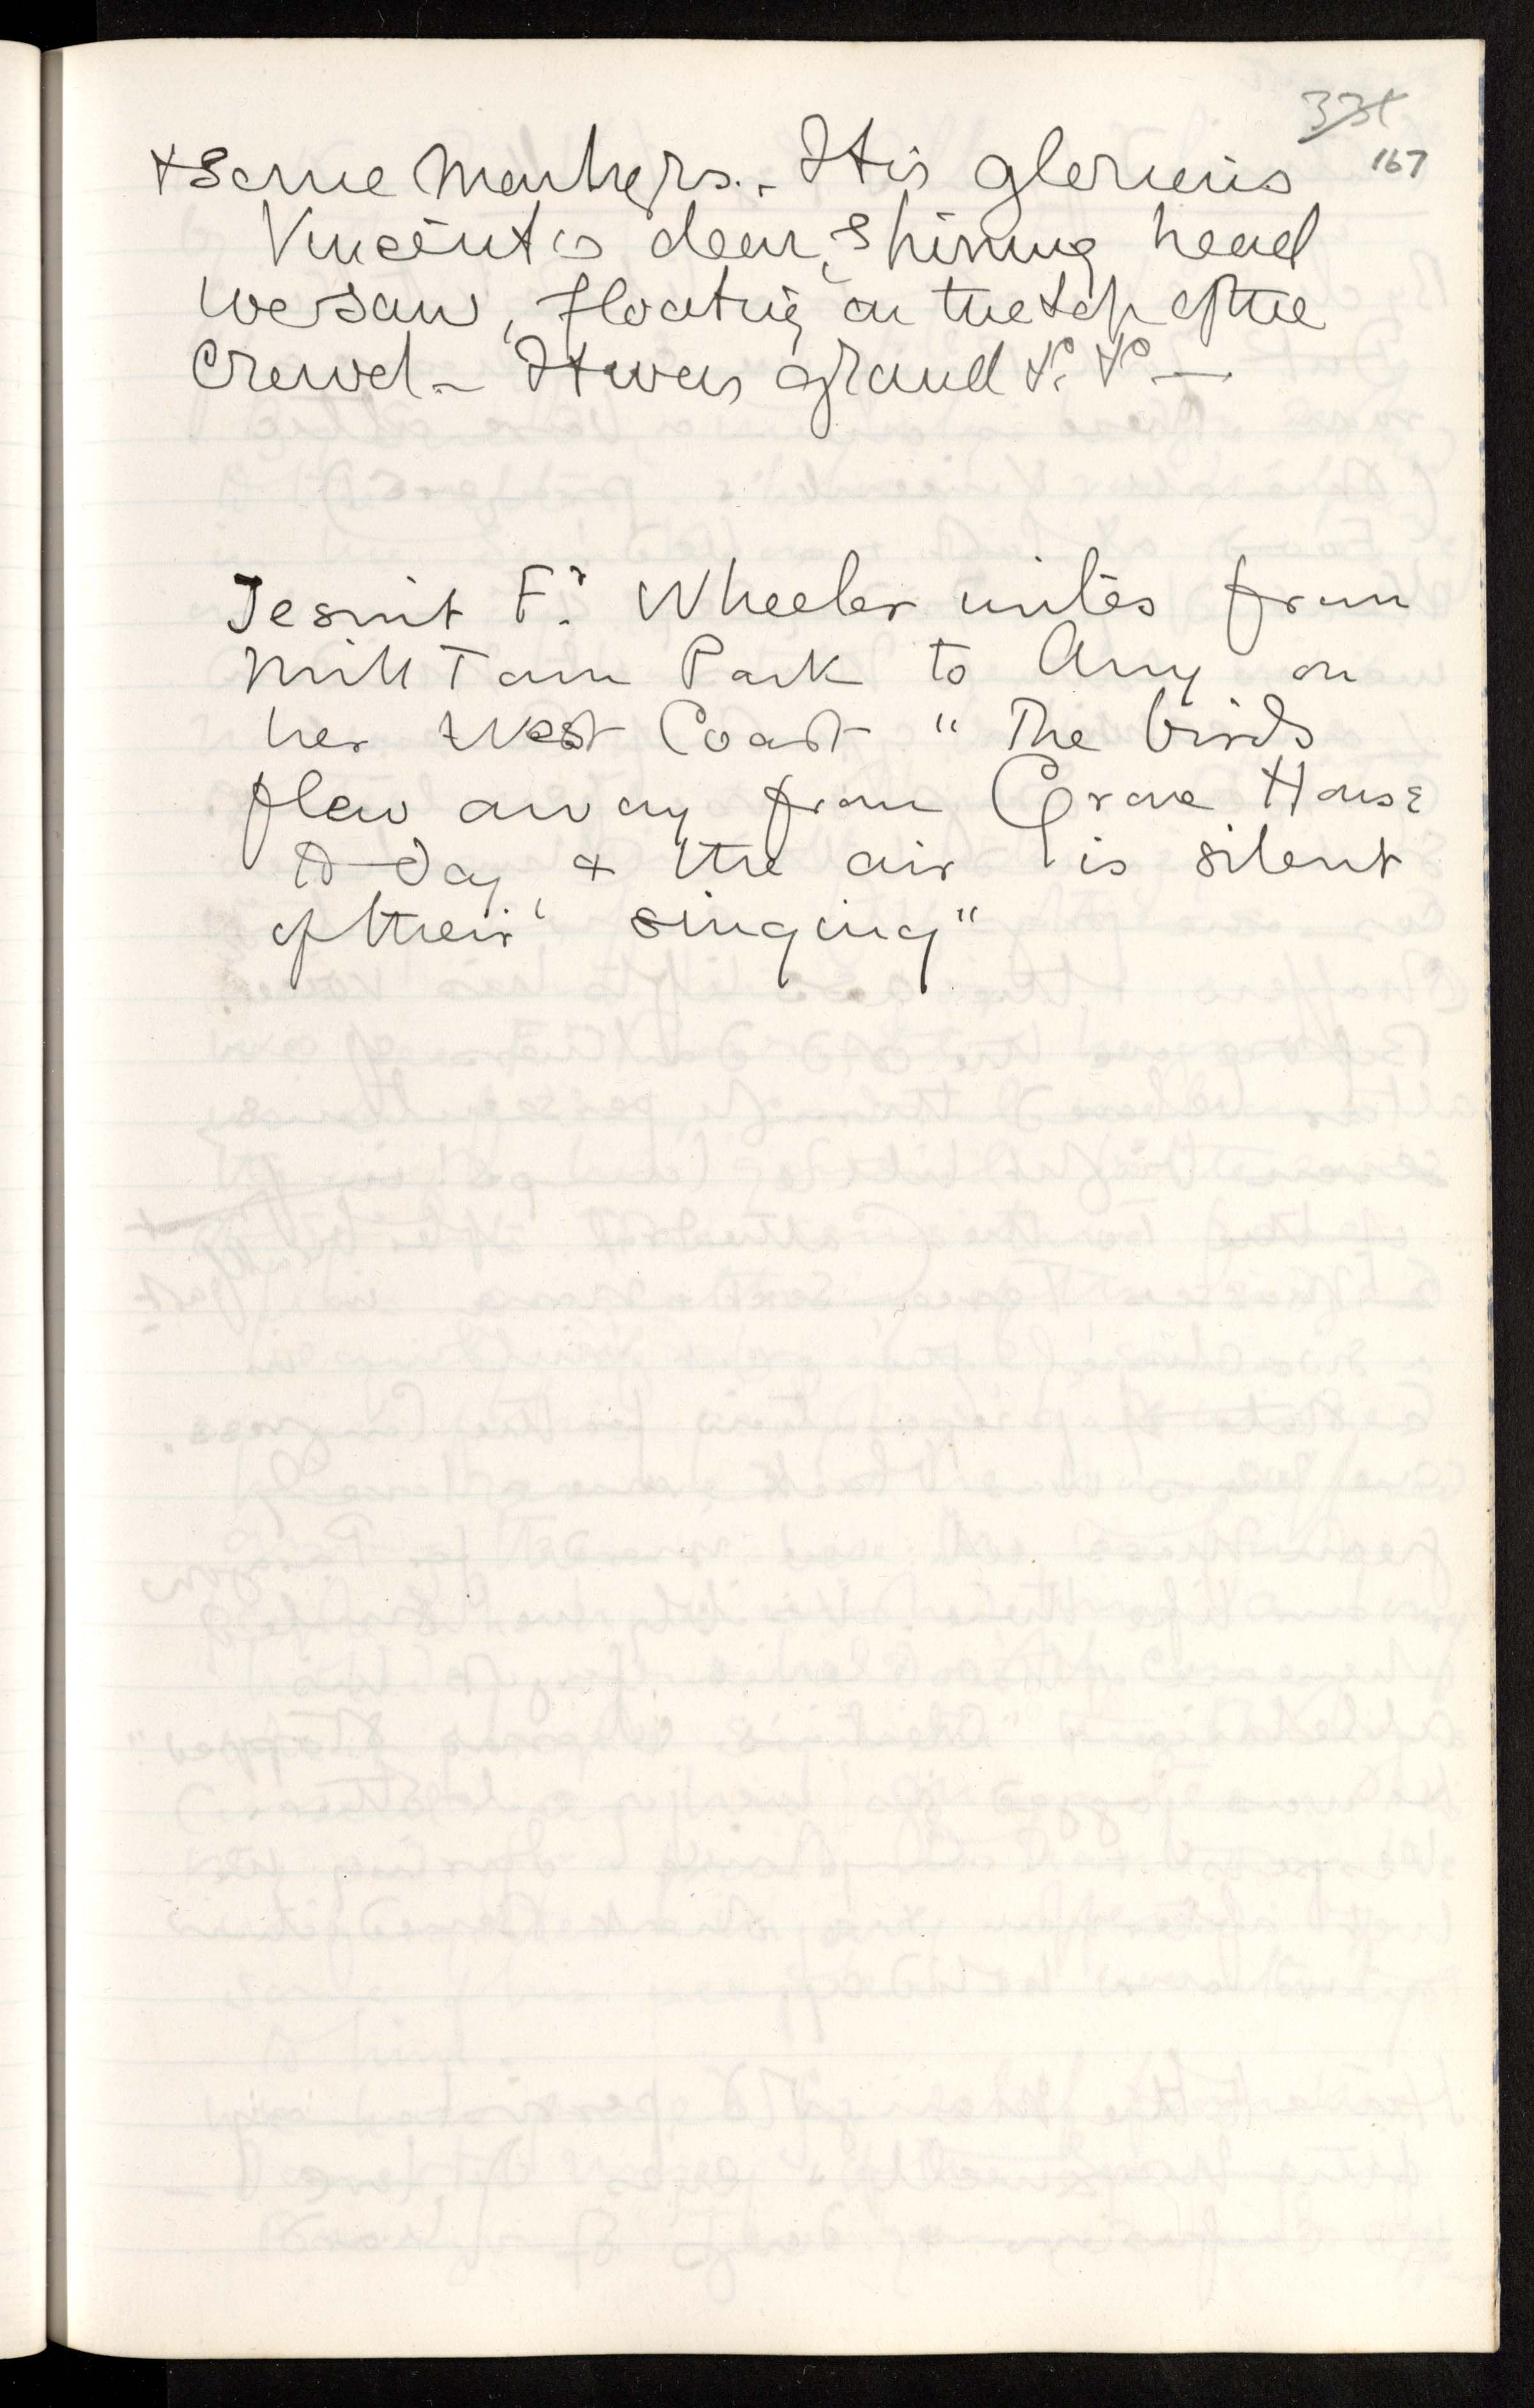 331
167
& some Monkeys.. It is glorious
Vincent's dear, shining head
we saw, floating on the top of the
Crowd – It was grand &c &c —
Jesuit Fr. Wheeler writes from
Mill Town Park to Amy on
her West Coast "The birds
flew away from Grove House
to-day, & the air is silent
of their singing"